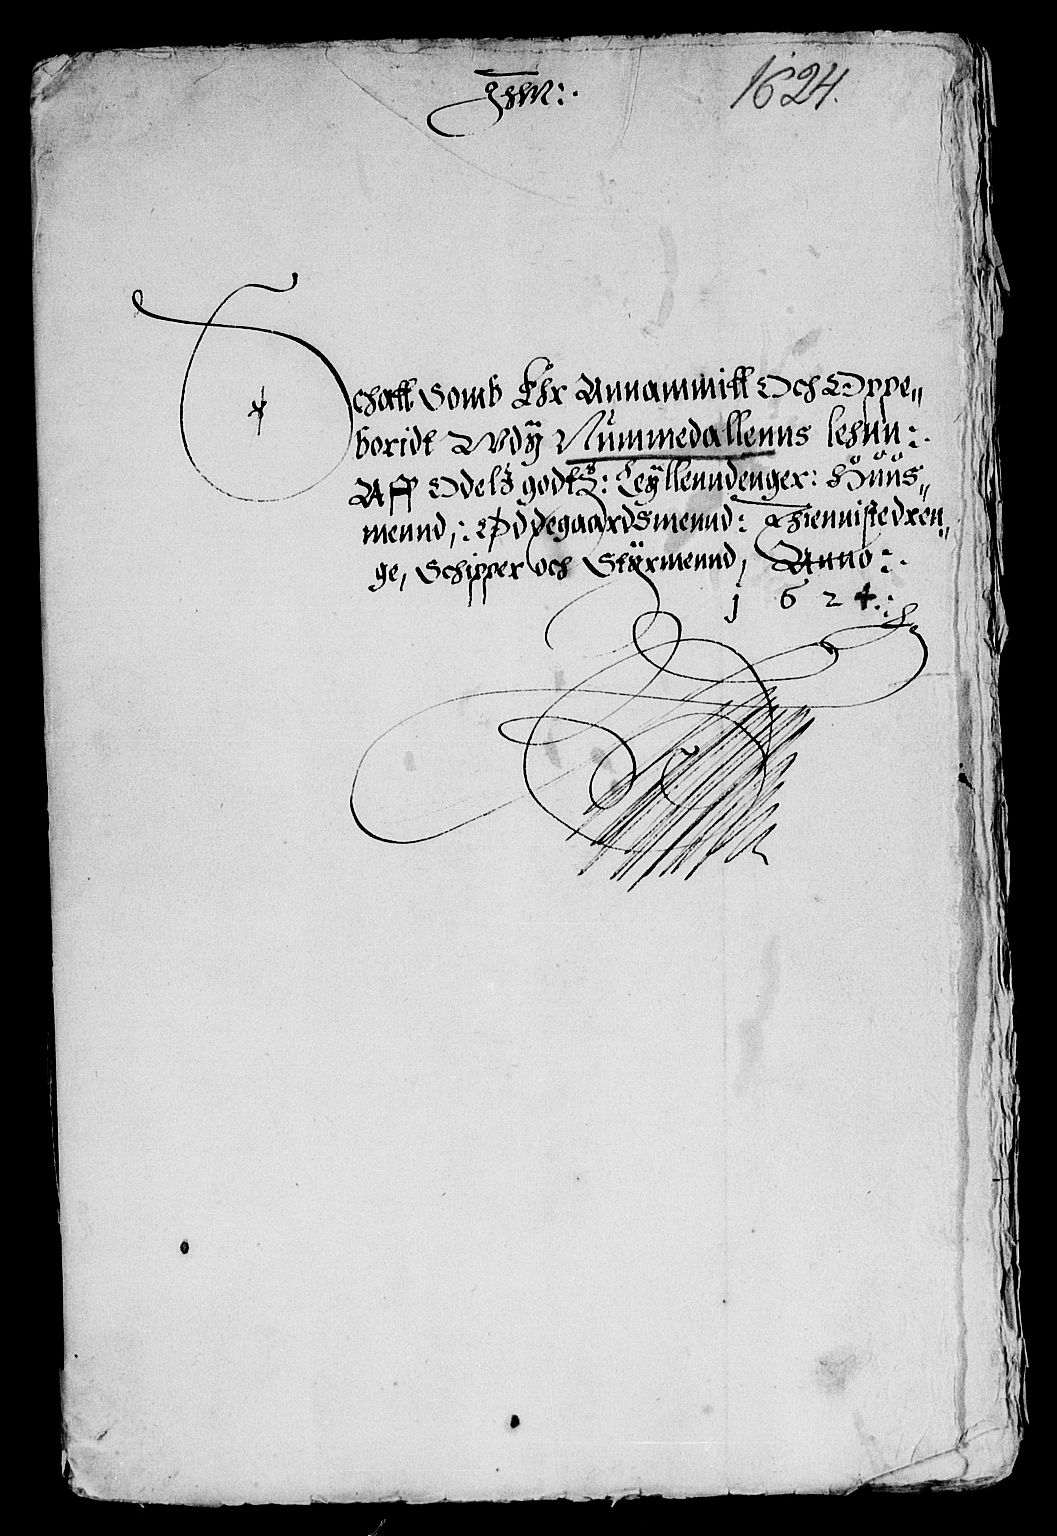 JhM:
1624.
Schatt Somb Ehr Annammitt Och Oppe„
boridt Wdÿ Nummedallenns lehnn:
Aff Odels godts: Leÿllenndenger: Huus„
mennd,: Øddegaardsmennd: Thiennistedren„
ge, Schipper och Stÿrmennd, Anno:
1624: